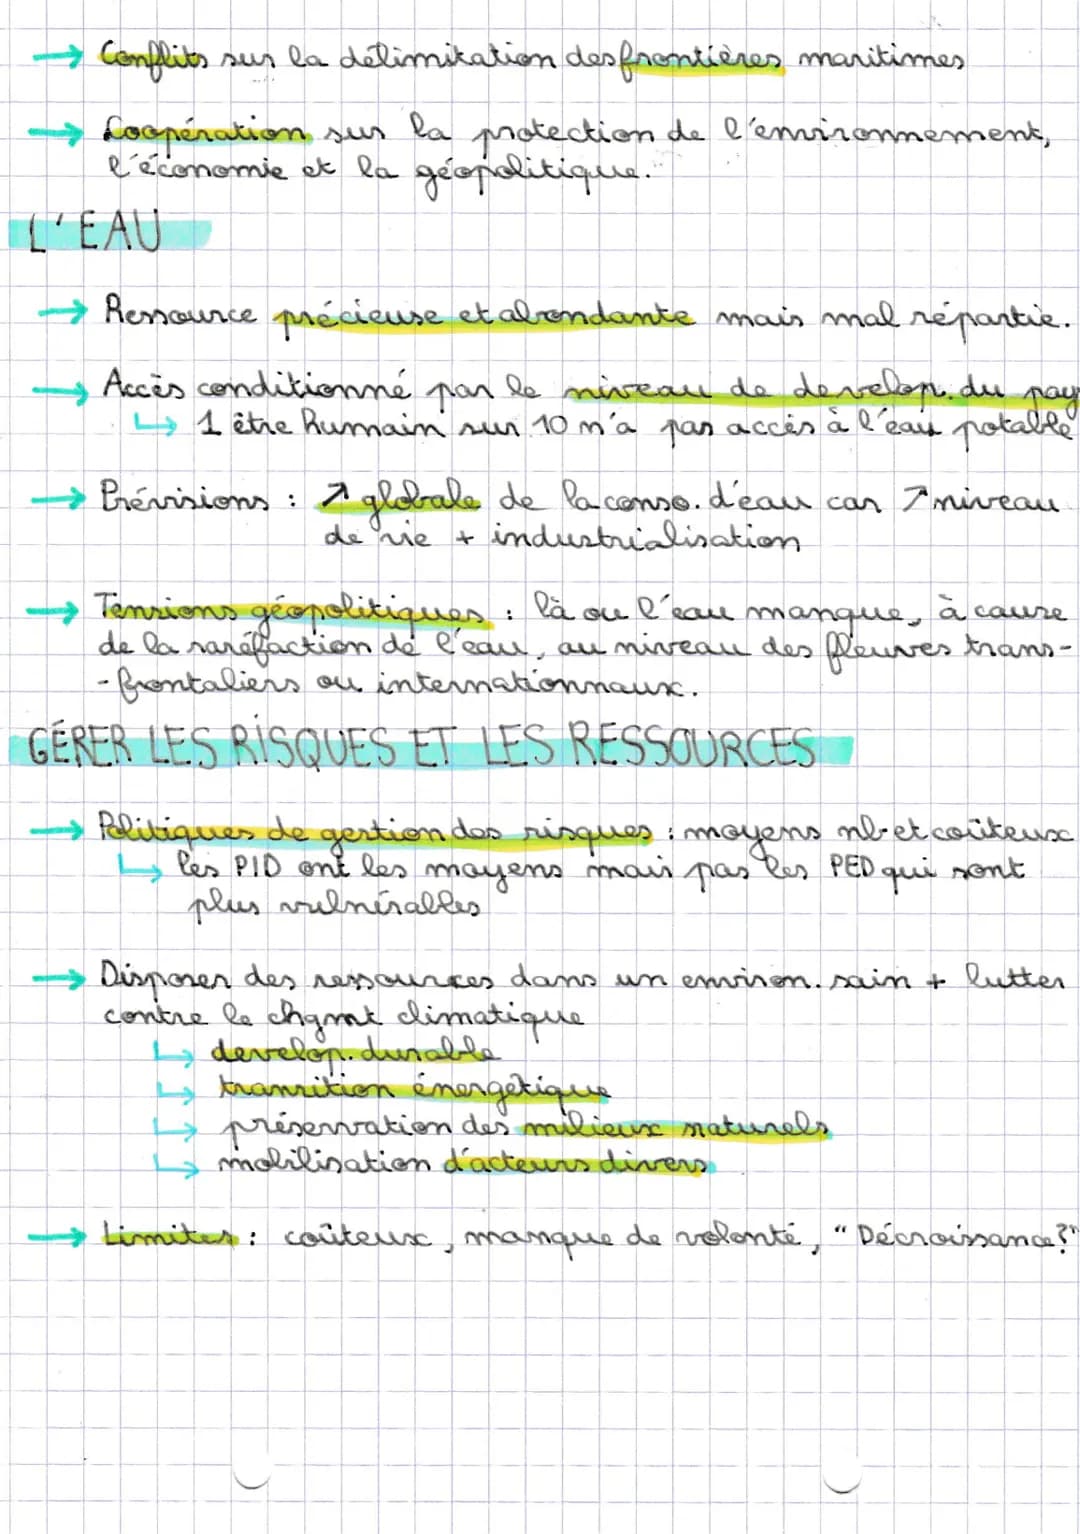 → Conflits sur la délimitation des frontières maritimes
→ Coopération sur la protection de l'environnement,
l'économie et la géopolitique.
L'EAU
→ Ressource précieuse et abondante mais mal répartie.
→ Accès conditionné par le niveau de develop. du pays
↳ 1 être humain sur 10 n'a pas accès à l'eau potable
→ Prévisions : ↗ globale de la conso. d'eau car ↗ niveau
de vie + industrialisation
→ Tensions géopolitiques : là ou l'eau manque, à cause
de la raréfaction de l'eau, au niveau des fleuves trans-
-frontaliers ou internationnaux.
GÉRER LES RISQUES ET LES RESSOURCES
→ Politiques de gestion des risques : moyens nb et coûteux
↳ les PID ont les moyens mais pas les PED qui sont
plus vulnérables
→ Disposer des ressources dans un environ. sain + lutter
contre le chgmt climatique
↳ develop. durable
↳ transition énergétique
↳ préservation des milieux naturels
↳ mobilisation d'acteurs divers
→ Limites : coûteux, manque de volonté, "Décroissance?"